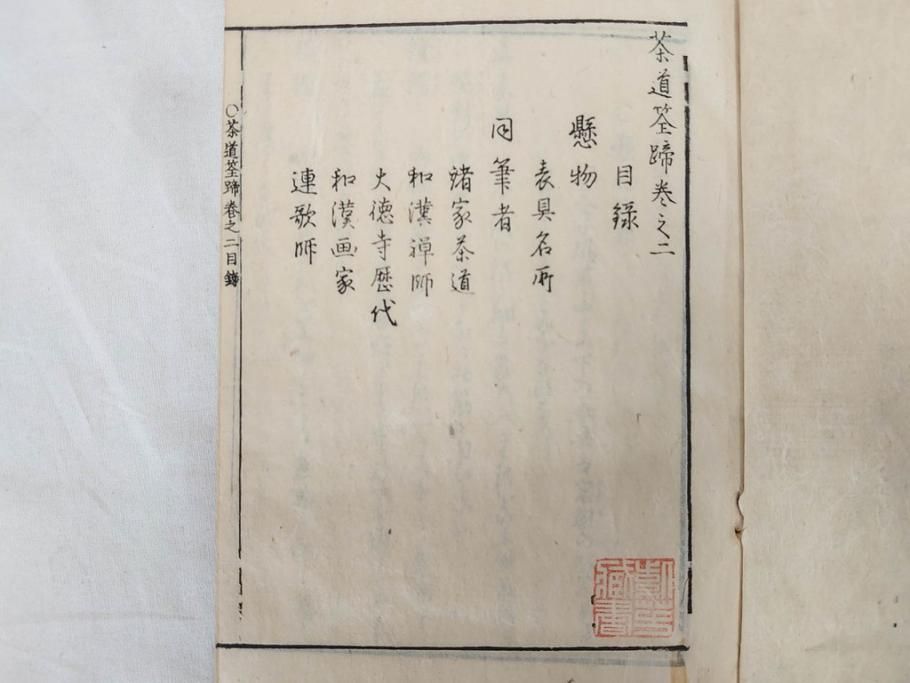 茶道筌蹄巻之二
目録
懸物
表具名所
同筆者
諸家茶道
和漢禅師
大徳寺歴代
和漢画家
連歌師
〇茶道筌蹄巻之二目録
藏書